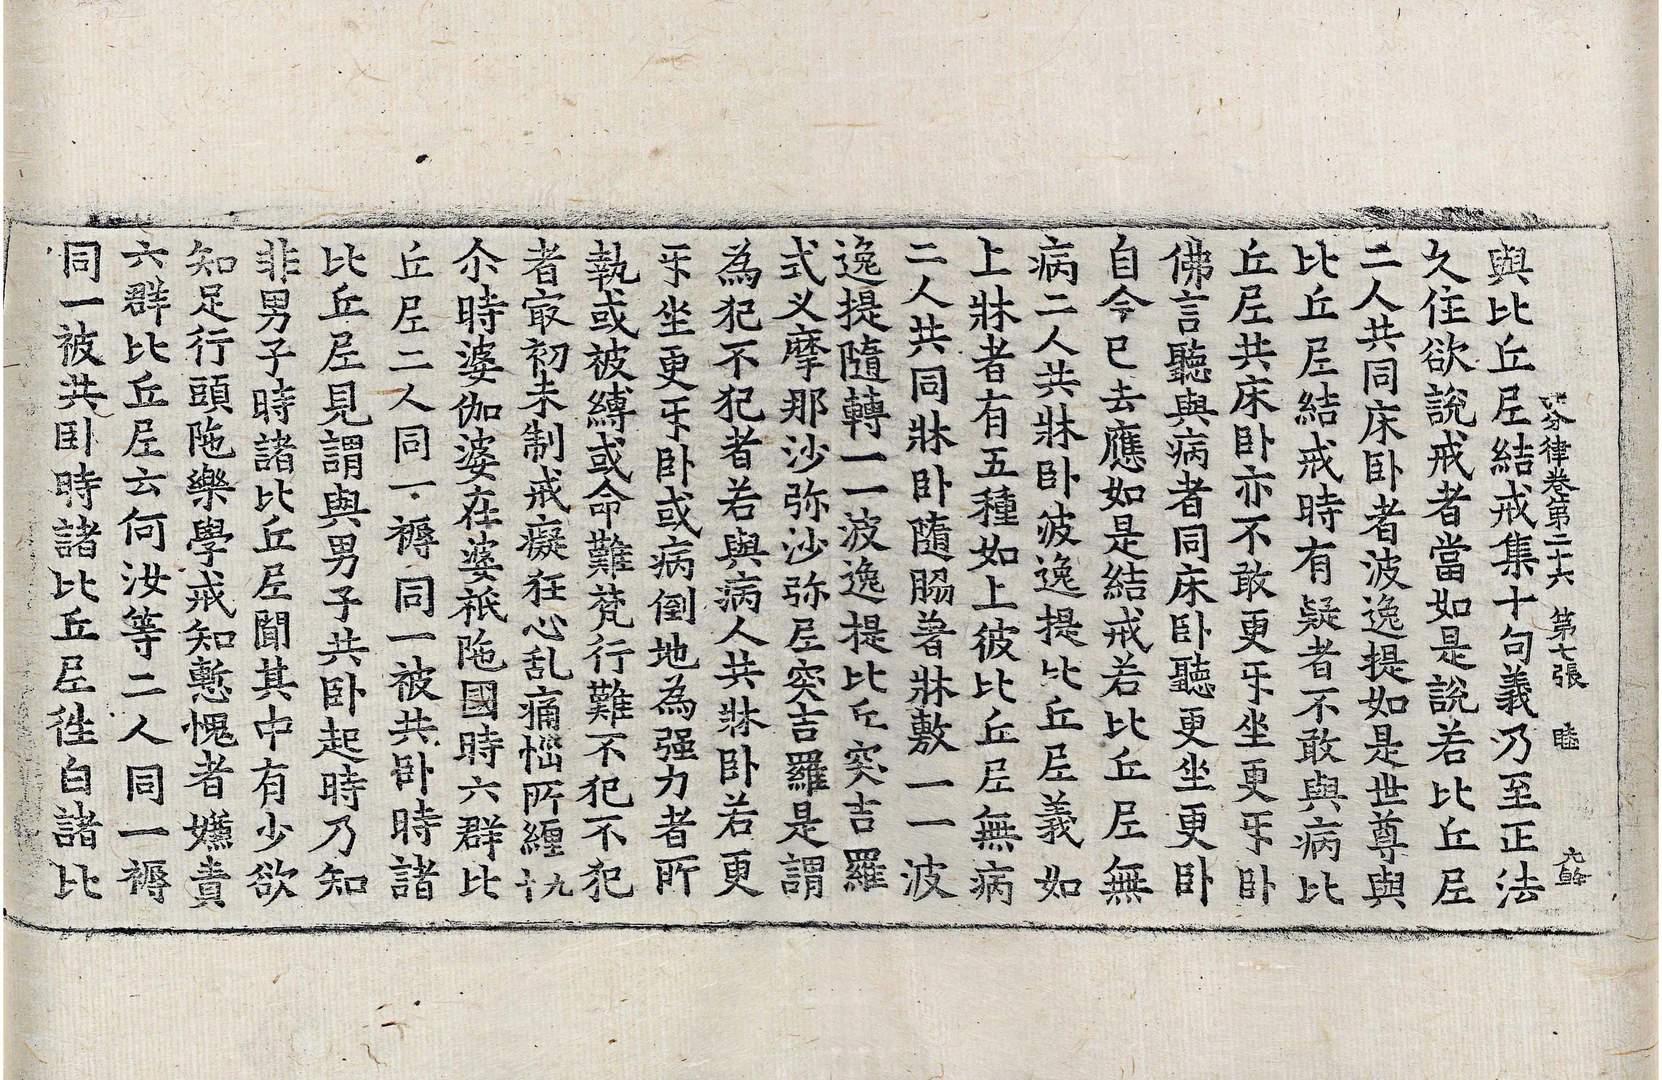 四分律卷第二十六 第七張 睦
與比丘尼結戒集十句義乃至正法
久住欲說戒者當如是說若比丘尼
二人共同床卧者波逸提如是世尊與
比丘尼結戒時有疑者不敢與病比
丘尼共床卧亦不敢更㸦坐更㸦卧
佛言聽與病者同床卧聽更坐更卧
自今已去應如是結戒若比丘尼無
病二人共牀卧波逸提比丘尼義如
上牀者有五種如上彼比丘尼無病
二人共同牀卧隨脇著牀敷一一波
逸提隨轉一一波逸提比丘突吉羅
式叉摩那沙弥沙弥尼突吉羅是謂
為犯不犯者若與病人共牀卧若更
㸦坐更㸦卧或病倒地為强力者所
執或被縛或命難梵行難不犯不犯
者寂初未制戒癡狂心乱痛惱所纏九十
尒時婆伽婆在婆祇陁國時六群比
丘尼二人同一褥同一被共卧時諸
比丘尼見謂與男子共卧起時乃知
非男子時諸比丘尼聞其中有少欲
知足行頭陁樂學戒知慙愧者嫌責
六群比丘尼云何汝等二人同一褥
同一被共卧時諸比丘尼徃白諸比